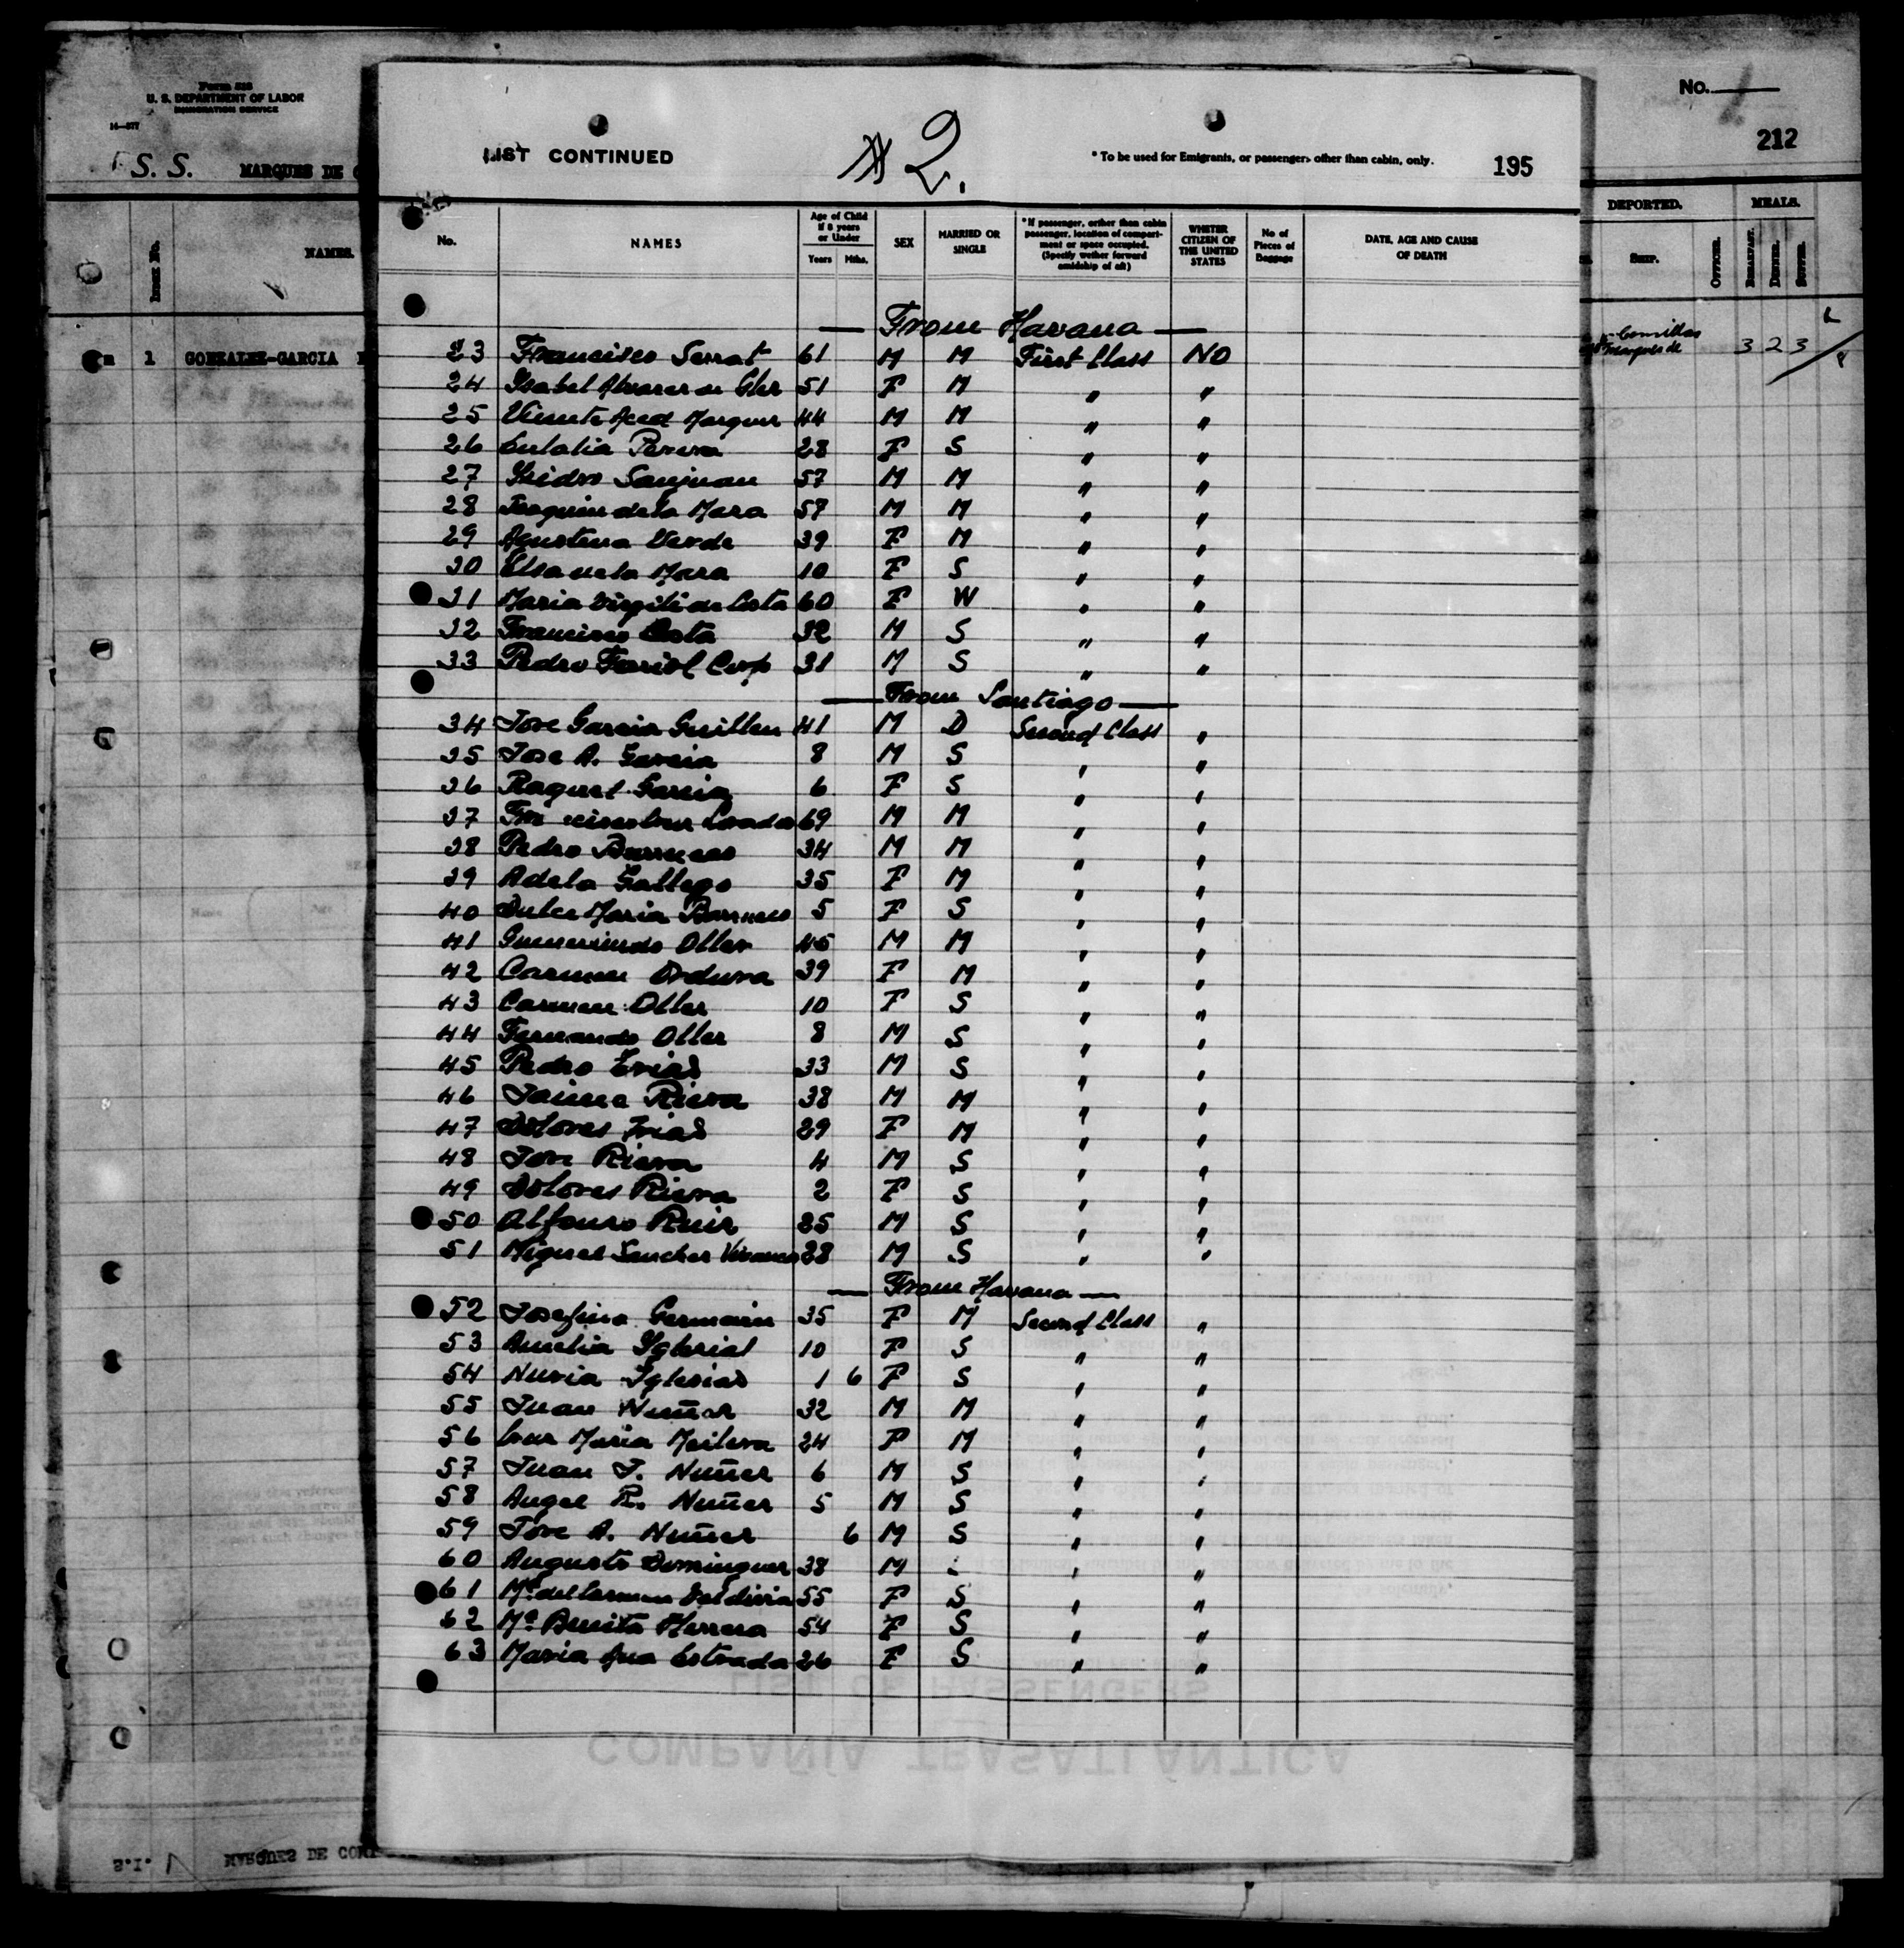 Form 528
U. S. DEPARTMENT OF LABOR
IMMIGRATION SERVICE
14—577
S. S. MARQUES DE
No.
212
NAMES.
DEPORTED.
MEALS.
SHIP.
OFFICER.
BREAKFAST.
DINNER.
SUPPER.
1 GONZALEZ-GARCIA
Comillas
Marques de
3 2 3
LIST CONTINUED
# 2.
* To be used for Emigrants, or passengers other than cabin, only.
195
No.
NAMES
Age of Child if 8 years or Under
Years Mths.
SEX
MARRIED OR SINGLE
* If passenger, orther than cabin passenger, location of compartment or space occupied. (Specify wether forward amidship of aft)
WHETER CITIZEN OF THE UNITED STATES
No of Pieces of Baggage
DATE, AGE AND CAUSE OF DEATH
— From Havana —
23 Francisco Serrat 61 M M First Class NO
24 Isabel Alvarez de 51 F M " "
25 Vicente Aced 44 M M " "
26 Eulalia Perera 28 F S " "
27 Isidro Sanjuan 57 M M " "
28 Joaquin de la Maza 57 M M " "
29 Agustina Verde 39 F M " "
30 Elsa de la Maza 10 F S " "
31 Maria Virgili de Costa 60 F W " "
32 Francisco Costa 32 M S " "
33 Pedro Fariol 31 M S " "
— From Santiago —
34 Jose Garcia Guillen 41 M D Second Class "
35 Jose A. Garcia 8 M S " "
36 Raquel Garcia 6 F S " "
37 69 M M " "
38 Pedro Barrueco 34 M M " "
39 Adela Gallego 35 F M " "
40 Dulce Maria Barrueco 5 F S " "
41 Gumersindo Oller 45 M M " "
42 Carmen Orduna 39 F M " "
43 Carmen Oller 10 F S " "
44 Fernando Oller 8 M S " "
45 Pedro Frias 33 M S " "
46 Jaime Riera 38 M M " "
47 Dolores Frias 29 F M " "
48 Jose Riera 4 M S " "
49 Dolores Riera 2 F S " "
50 Alfonso Ruiz 25 M S " "
51 Miguel Sanchez 28 M S " "
— From Havana —
52 Josefina Germain 35 F M Second Class "
53 Amelia Iglesias 10 F S " "
54 Nuria Iglesias 1 6 F S " "
55 Juan Nuñez 32 M M " "
56 Cruz Maria 24 F M " "
57 Juan J. Nuñez 6 M S " "
58 Angel R. Nuñez 5 M S " "
59 Jose A. Nuñez 6 M S " "
60 Augusto Dominguez 38 M " "
61 Mª del Carmen Valdivia 55 F S " "
62 Mª Benita Herrera 54 F S " "
63 Maria Ana Estrada 26 F S " "
LIST OF PASSENGERS
COMPAÑIA TRASATLANTICA
S.I. MARQUES DE COMI